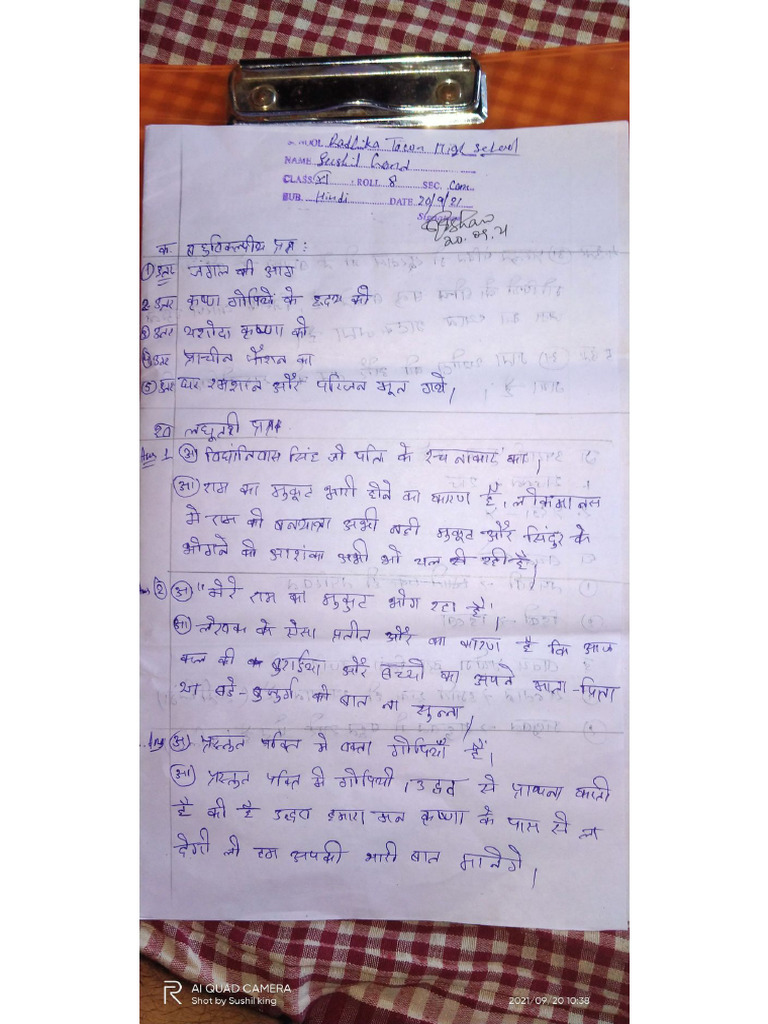 SCHOOL Radhika Town High School
NAME Sushil Gond
CLASS XI ROLL 8 SEC. Com
SUB. Hindi DATE 20/9/21
20.09.21
क. बहुविकल्पीय प्रश्न :
① उत्तर जंगल की आग
2 उत्तर कृष्ण गोपियों के हृदय को
③ उत्तर यशोदा कृष्णा को
④ उत्तर प्राचीन फैशन का
⑤ उत्तर घर श्मशान और परिजन भूत गये।
ख लघूतरी प्रश्न
Ans 1 अ विद्यानिवास सिंह जी पति के
आ राम का मुकूट भारी होने का कारण है, लोकमानस
मे राम की बनयात्रा अभी नही मुकूट और सिंदुर के
भोगने की आशंका अभी भी चल से रही है।
Ans 2 अ "मेरे राम का मुकुट भीग रहा है"।
आ लेखक के ऐसा प्रतीत और का कारण है कि आज
कल की बुराईया और बच्चो का अपने माता-पिता
या बडे-बुजुर्ग की बात ना सुन्ना।
अ प्रस्तुत पंक्ति मे वक्ता गोपियाँ हैं।
आ प्रस्तुत पंक्ति मे गोपियाँ, उद्धव से प्राथना करती
है की है उद्धव हमारा मन कृष्णा के पास से ला
देगी तो हम आपकी भारी बात मानेगे।
AI QUAD CAMERA
Shot by Sushil king
2021/09/20 10:38